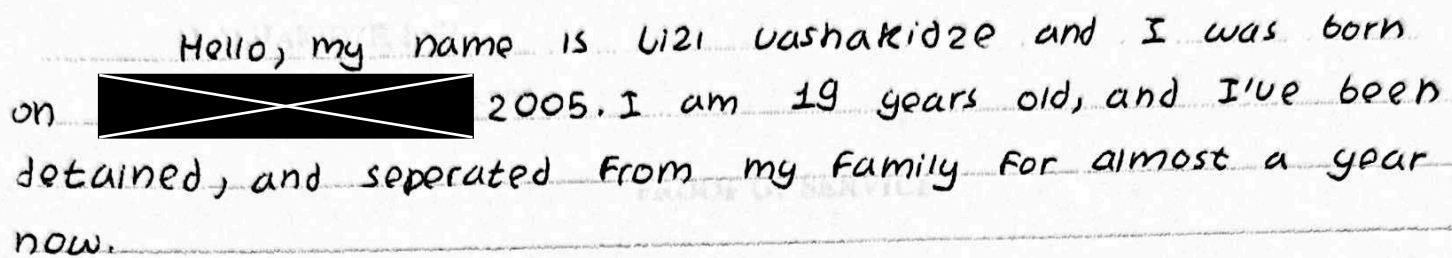 Hello, my name is Lizi Vashakidze and I was born
on 2005. I am 19 years old, and I've been
detained, and seperated from my family for almost a year
now.